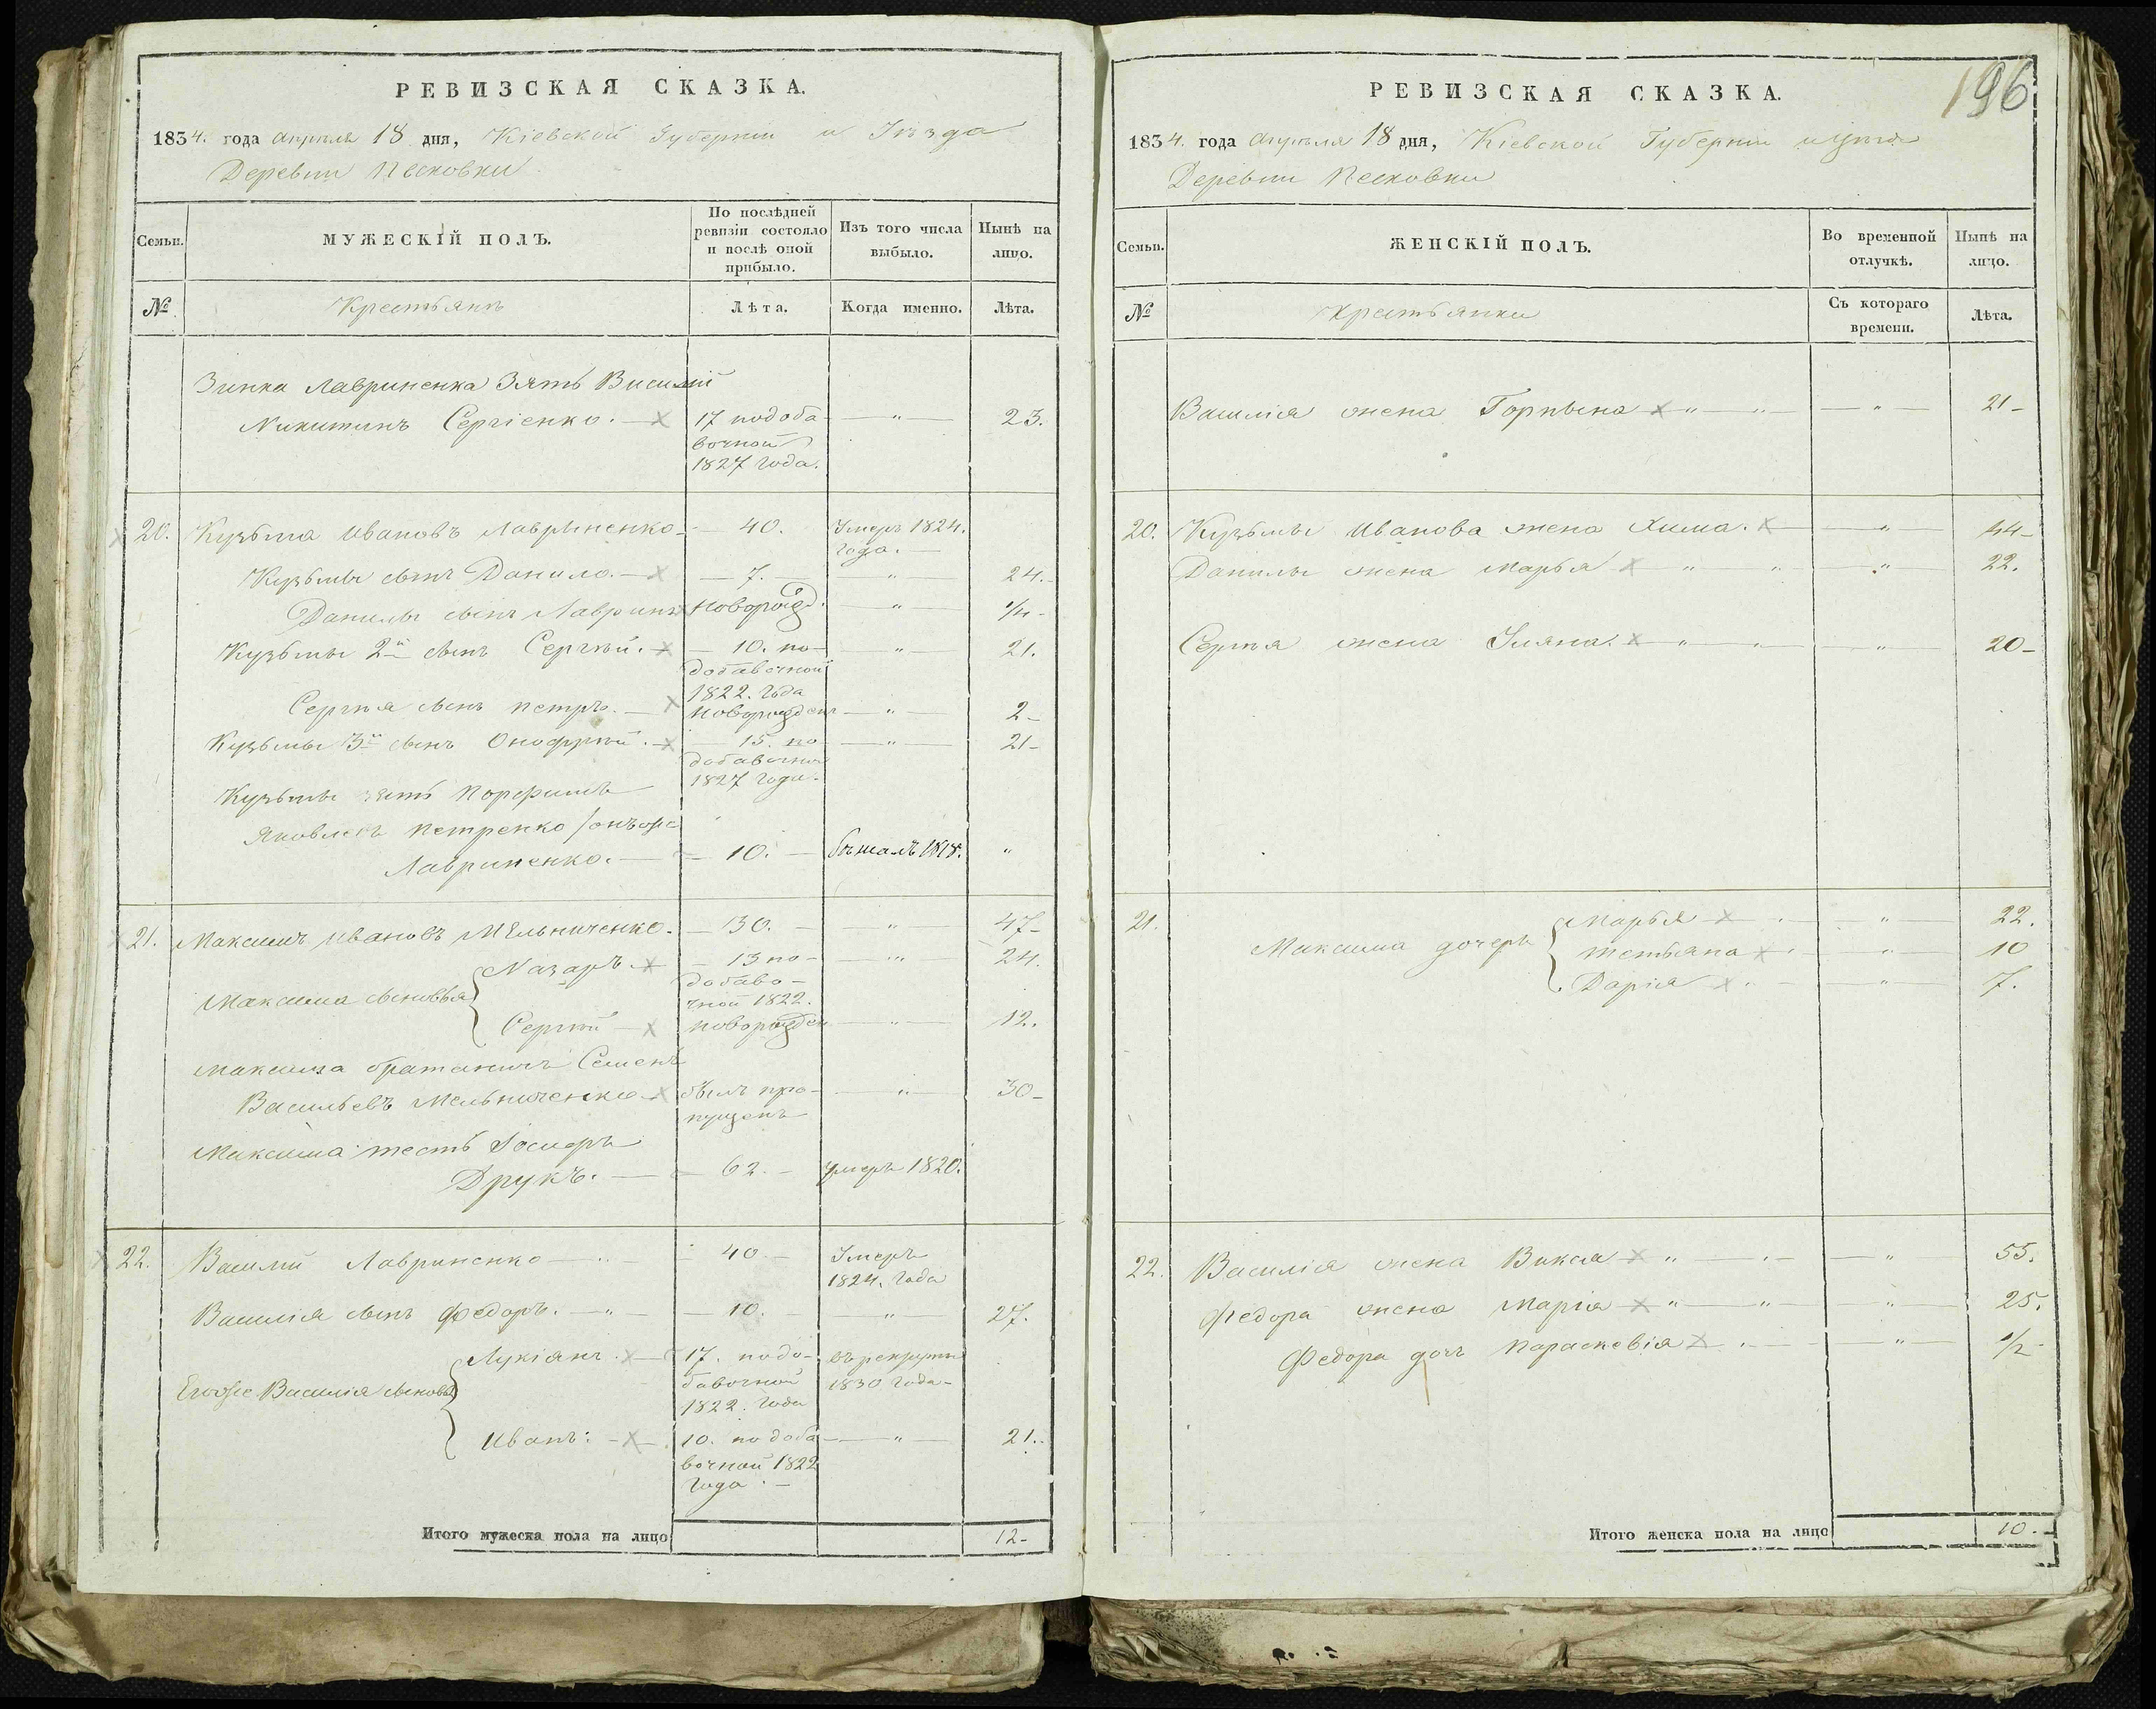 РЕВИЗСКАЯ СКАЗКА.
1834. года апреля 18 дня, Кіевской Губерніи и Уезда
Деревни Песковки
Семьи.
МУЖЕСКІЙ ПОЛЪ.
По послѣдней ревизіи состояло и послѣ оной прибыло.
Изъ того числа выбыло.
Нынѣ на лицо.
№
Крестьянъ
Лѣта.
Когда именно.
Лѣта.
Зинка Лавриненка Зять Василій
Никитинъ Сергіенко. 17 по доба- " 23.
вочной
1827 года.
20. Кузьма Ивановъ Лавриненко 40. Умеръ 1824.
года.
Кузьмы сынъ Данило. 7. " 24.
Данилы сынъ Лавринъ новорожд. " 1/4
Кузьмы 2й сынъ Сергѣй. 10. по " 21.
добавочной
1822. года
Сергѣя сынъ Петръ. новорожден " 2
Кузьмы 3й сынъ Онофрѣй. 15. по " 21
добавочной
1827 года.
Кузьмы зять Порфилъ
Яковлевъ Петренко /онъ же
Лавриненко. 10. бѣжалъ 1818. "
21. Максимъ Ивановъ Мельниченко. 30. " 47
Максима сыновья { Назаръ. 13 по " 24.
добаво-
чной 1822.
Сергѣй новорожден " 12.
Максима братаничъ Семенъ
Васильевъ Мельниченко былъ про- " 30
пущенъ
Максима тесть Іосифъ
Друкъ. 62. умеръ 1820.
22. Василій Лавриненко " 40 Умеръ
1824. года
Василія сынъ Федоръ. " 10. " 27.
Егоже Василія сыновья { Лукіянъ 17. по до- въ рекруты
бавочной 1830 года
1822. года
Иванъ: 10. по доба " 21.
вочной 1822
года
Итого мужеска пола на лицо 12
196
РЕВИЗСКАЯ СКАЗКА.
1834. года апреля 18 дня, Кіевской Губерніи и уезда
Деревни Песковки
Семьи.
ЖЕНСКІЙ ПОЛЪ.
Во временной отлучкѣ.
Нынѣ на лицо.
№
Крестьянки
Съ котораго времени.
Лѣта.
Василія жена Горпына " " " 21
20. Кузьмы Иванова жена Хима. " 44
Данилы жена Марья " " " 22.
Сергѣя жена Уляна. " " " 20
21. Максима дочери { Марья " " 22.
Тетьяна " " 10
Дарія " " 7.
22. Василія жена Викся " " " 55.
Федора жена Марія " " " 25.
Федора дочъ Параскевія " " 1/2
Итого женска пола на лицо 10.